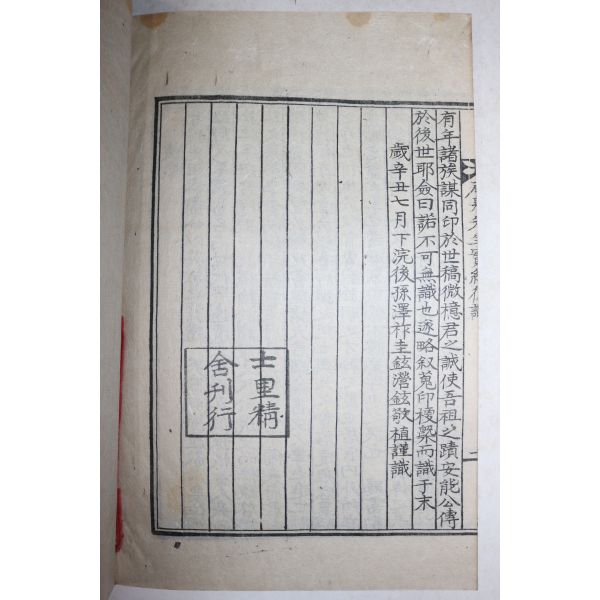 有年諸族謀同印於世稿微檍君之誠使吾祖之蹟安能公傳
於後世耶僉曰諾不可無識也遂略叙蒐印稜槩而識于末
歲辛丑七月下浣後孫澤祚圭鉉瀯鉉敬植謹識
士里精
舍刊行